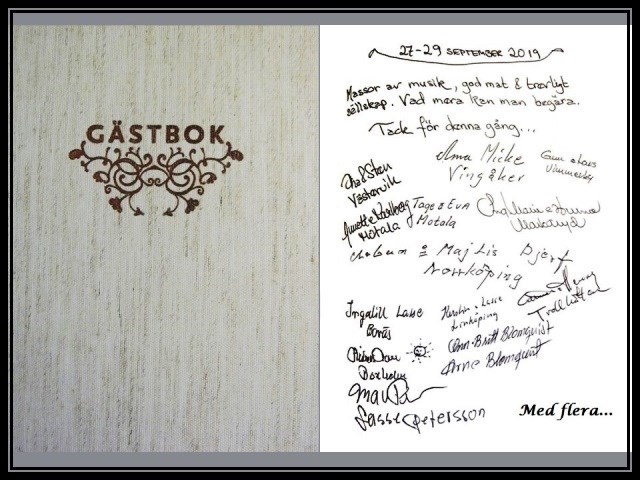 GÄSTBOK
27-29 SEPTEMBER 2019
Massor av musik, god mat & trevligt
sällskap. Vad mera kan man begära.
Tack för denna gång...
Micke
Vingåker
Gun o Lars
Vimmerby
Sten
Västervik
Karlberg
Motala
Tage & Eva
Motala
Maj Lis Djerf
Norrköping
Ingalill Lasse
Borås
Kerstin o Lasse
Linköping
Ann-Britt Blomqvist
Arne Blomqvist
Lasse petersson
Med flera...